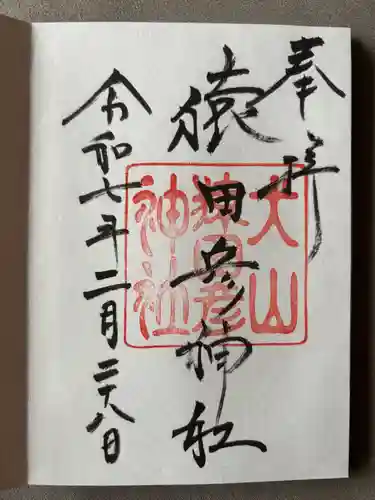 奉拝
猿田彦神社
犬山
猿田彦
神社
令和七年二月二十八日